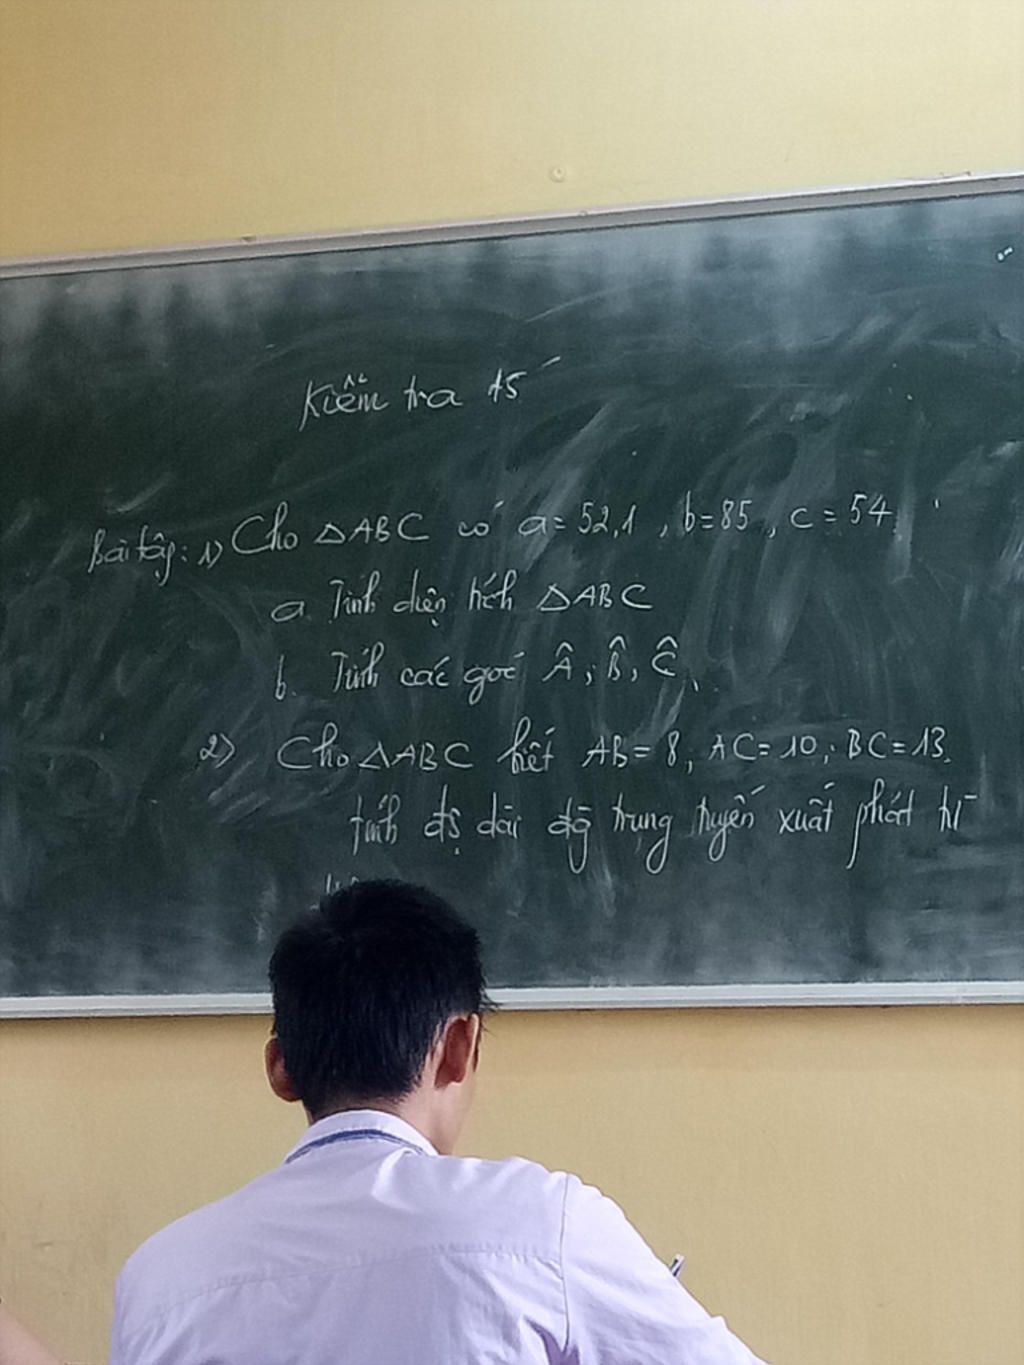 Kiểm tra 15'
Bài tập: 1) Cho △ABC có a = 52,1 , b = 85 , c = 54.
a. Tính diện tích △ABC
b. Tính các góc Â, B̂, Ĉ.
2) Cho △ABC biết AB = 8, AC = 10; BC = 13.
tính độ dài đg trung tuyến xuất phát từ